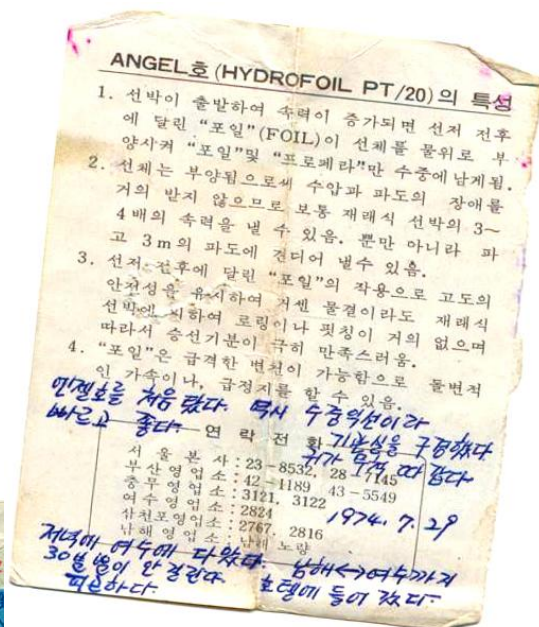 ANGEL호 (HYDROFOIL PT/20)의 특성
1. 선박이 출발하여 속력이 증가되면 선저 전후
에 달린 “포일”(FOIL)이 선체를 물위로 부
양시켜 “포일”및 “프로페라”만 수중에 남게됨.
2. 선체는 부양됨으로써 수압과 파도의 장애를
거의 받지 않으므로 보통 재래식 선박의 3~
4배의 속력을 낼 수 있음. 뿐만 아니라 파
고 3m의 파도에 견디어 낼수 있음.
3. 선저 전후에 달린 “포일”의 작용으로 고도의
안전성을 유시하여 거센 물결이라도 재래식
선박에 비하여 로링이나 핏칭이 거의 없으며
따라서 승선기분이 극히 만족스러움.
4. “포일”은 급격한 변천이 가능함으로 돌변적
인 가속이나, 급정지를 할 수 있음.
엔젤호를 처음 탔다. 역시 수중익선이라
빠르고 좋다. 기관실을 구경했다.
귀가 무척 따갑다.
연락전화
서울본사:23-8532, 28-7145
부산영업소:42-1189 43-5549
충무영업소:3121, 3122
여수영업소:2824
삼천포영업소:2767, 2816
남해영업소:남해 노량
1974. 7. 29
저녁에 여수에 다왔다. 남해↔여수까지
30분 밖이 안 걸린다. 호텔에 들어 갔다.
피곤하다.